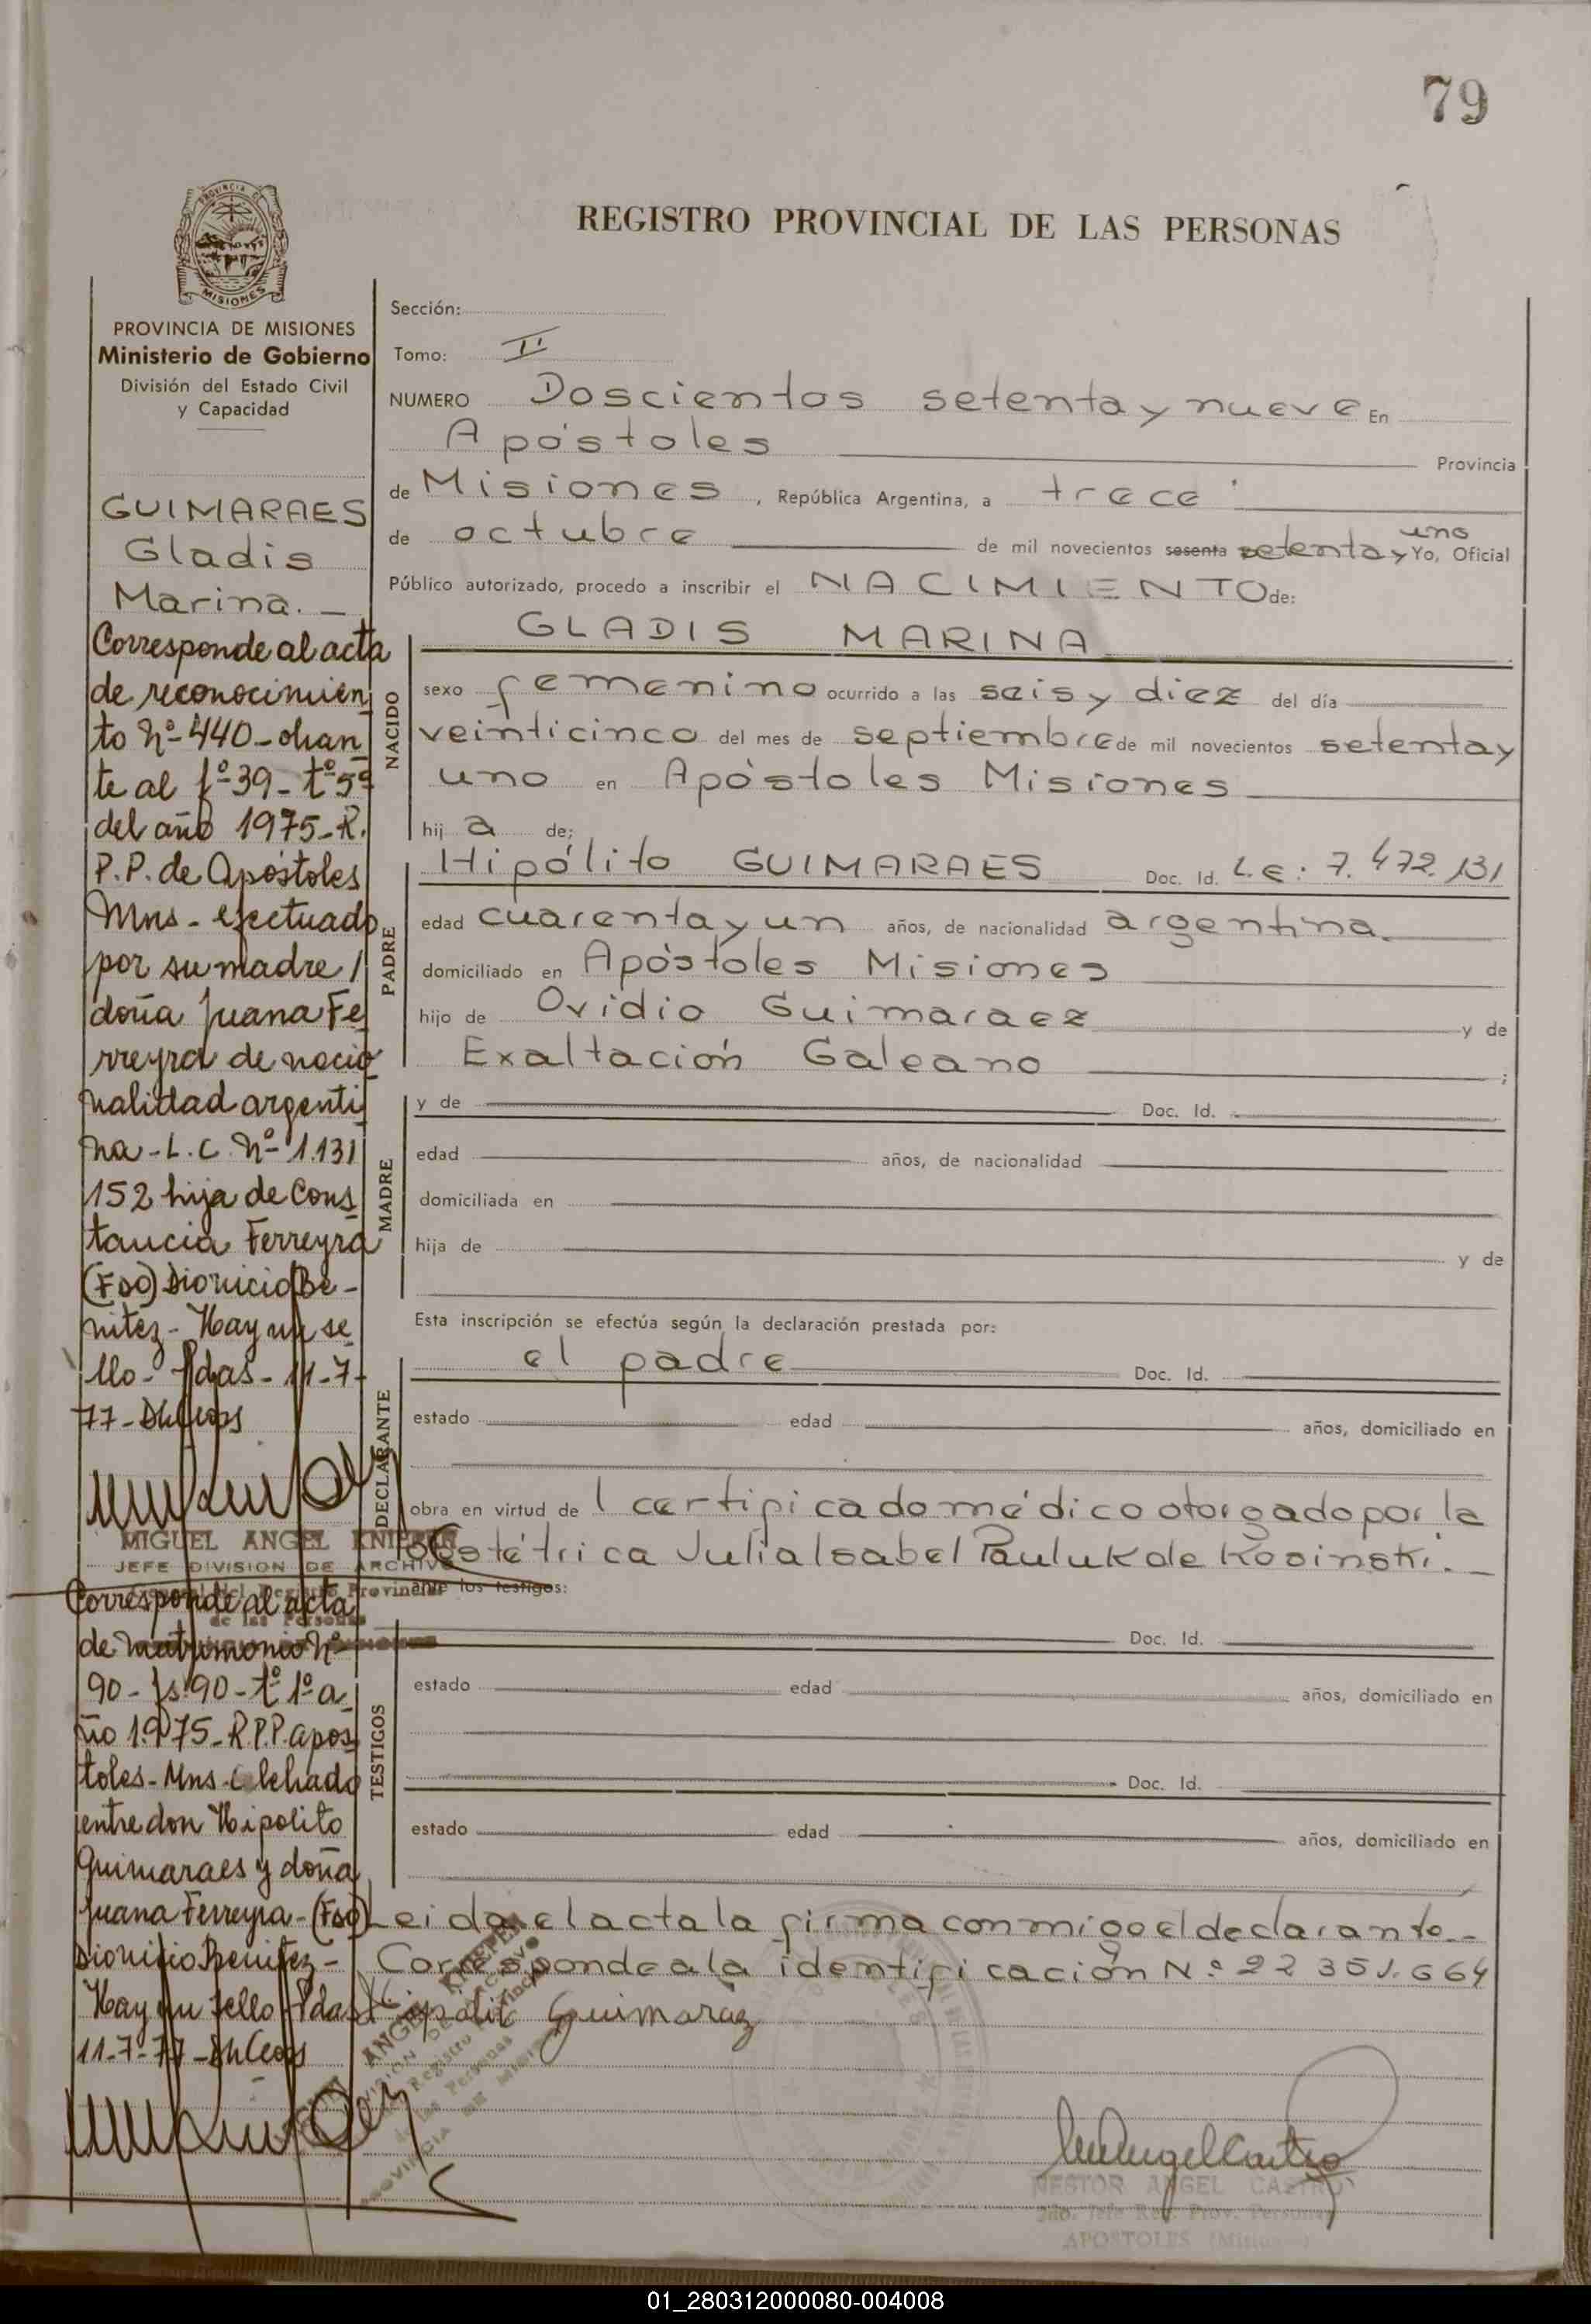 79
PROVINCIA DE
MISIONES
REGISTRO PROVINCIAL DE LAS PERSONAS
PROVINCIA DE MISIONES
Ministerio de Gobierno
División del Estado Civil
y Capacidad
GUIMARAES
Gladis
Marina. —
Corresponde al acta
de reconocimien
to Nº 440 - obran
te al fº 39 - tº 5º
del año 1975 - R.
P.P. de Apóstoles
Mns - efectuado
por su madre /
doña Juana Fe
rreyra de nacio
nalidad argenti
na - L.C. Nº 1.131
152 hija de Cons
tancia Ferreyra
(Fdo) Dionicio Be-
nitez - Hay un se
llo - Pdas - 11-7-
77 -
MIGUEL ANGEL KNIEPEN
JEFE DIVISION DE ARCHIVO
General del Registro Provincial
de las Personas
Corresponde al acta
de matrimonio Nº
90 - fs: 90 - tº 1º a
ño 1975 - R.P.P. Apos
toles - Mns - Celebrado
entre don Hipolito
Guimaraes y doña
Juana Ferreyra - (Fdo)
Dionisio Benitez -
Hay un sello - Pdas
11-7-77 -
Sección:
Tomo: II
NUMERO Doscientos setenta y nueve En
Apóstoles Provincia
de Misiones, República Argentina, a trece
de octubre de mil novecientos sesenta setenta y uno Yo, Oficial
Público autorizado, procedo a inscribir el NACIMIENTO de:
GLADIS MARINA
NACIDO
sexo femenino ocurrido a las seis y diez del día
veinticinco del mes de septiembre de mil novecientos setenta y
uno en Apóstoles Misiones
hij a de;
PADRE
Hipólito GUIMARAES Doc. Id. L.E: 7.472.131
edad cuarenta y un años, de nacionalidad argentina.
domiciliado en Apóstoles Misiones
hijo de Ovidio Guimaraez y de
Exaltación Galeano ;
MADRE
y de Doc. Id.
edad años, de nacionalidad
domiciliada en
hija de y de
Esta inscripción se efectúa según la declaración prestada por:
DECLARANTE
el padre Doc. Id.
estado edad años, domiciliado en
obra en virtud de l certificado médico otorgado por la
obstétrica Julia Isabel Pauluk de Kosinski. —
ante los testigos:
TESTIGOS
Doc. Id.
estado edad años, domiciliado en
Doc. Id.
estado edad años, domiciliado en
Leida el acta la firma conmigo el declarante. -
Corresponde a la identificación Nº 22 351.664
Guimaraz
ANGEL KNIEPEN
NESTOR ANGEL CASTRO
2do. Jefe Reg. Prov. Personas
APOSTOLES (Misiones)
01_280312000080-004008